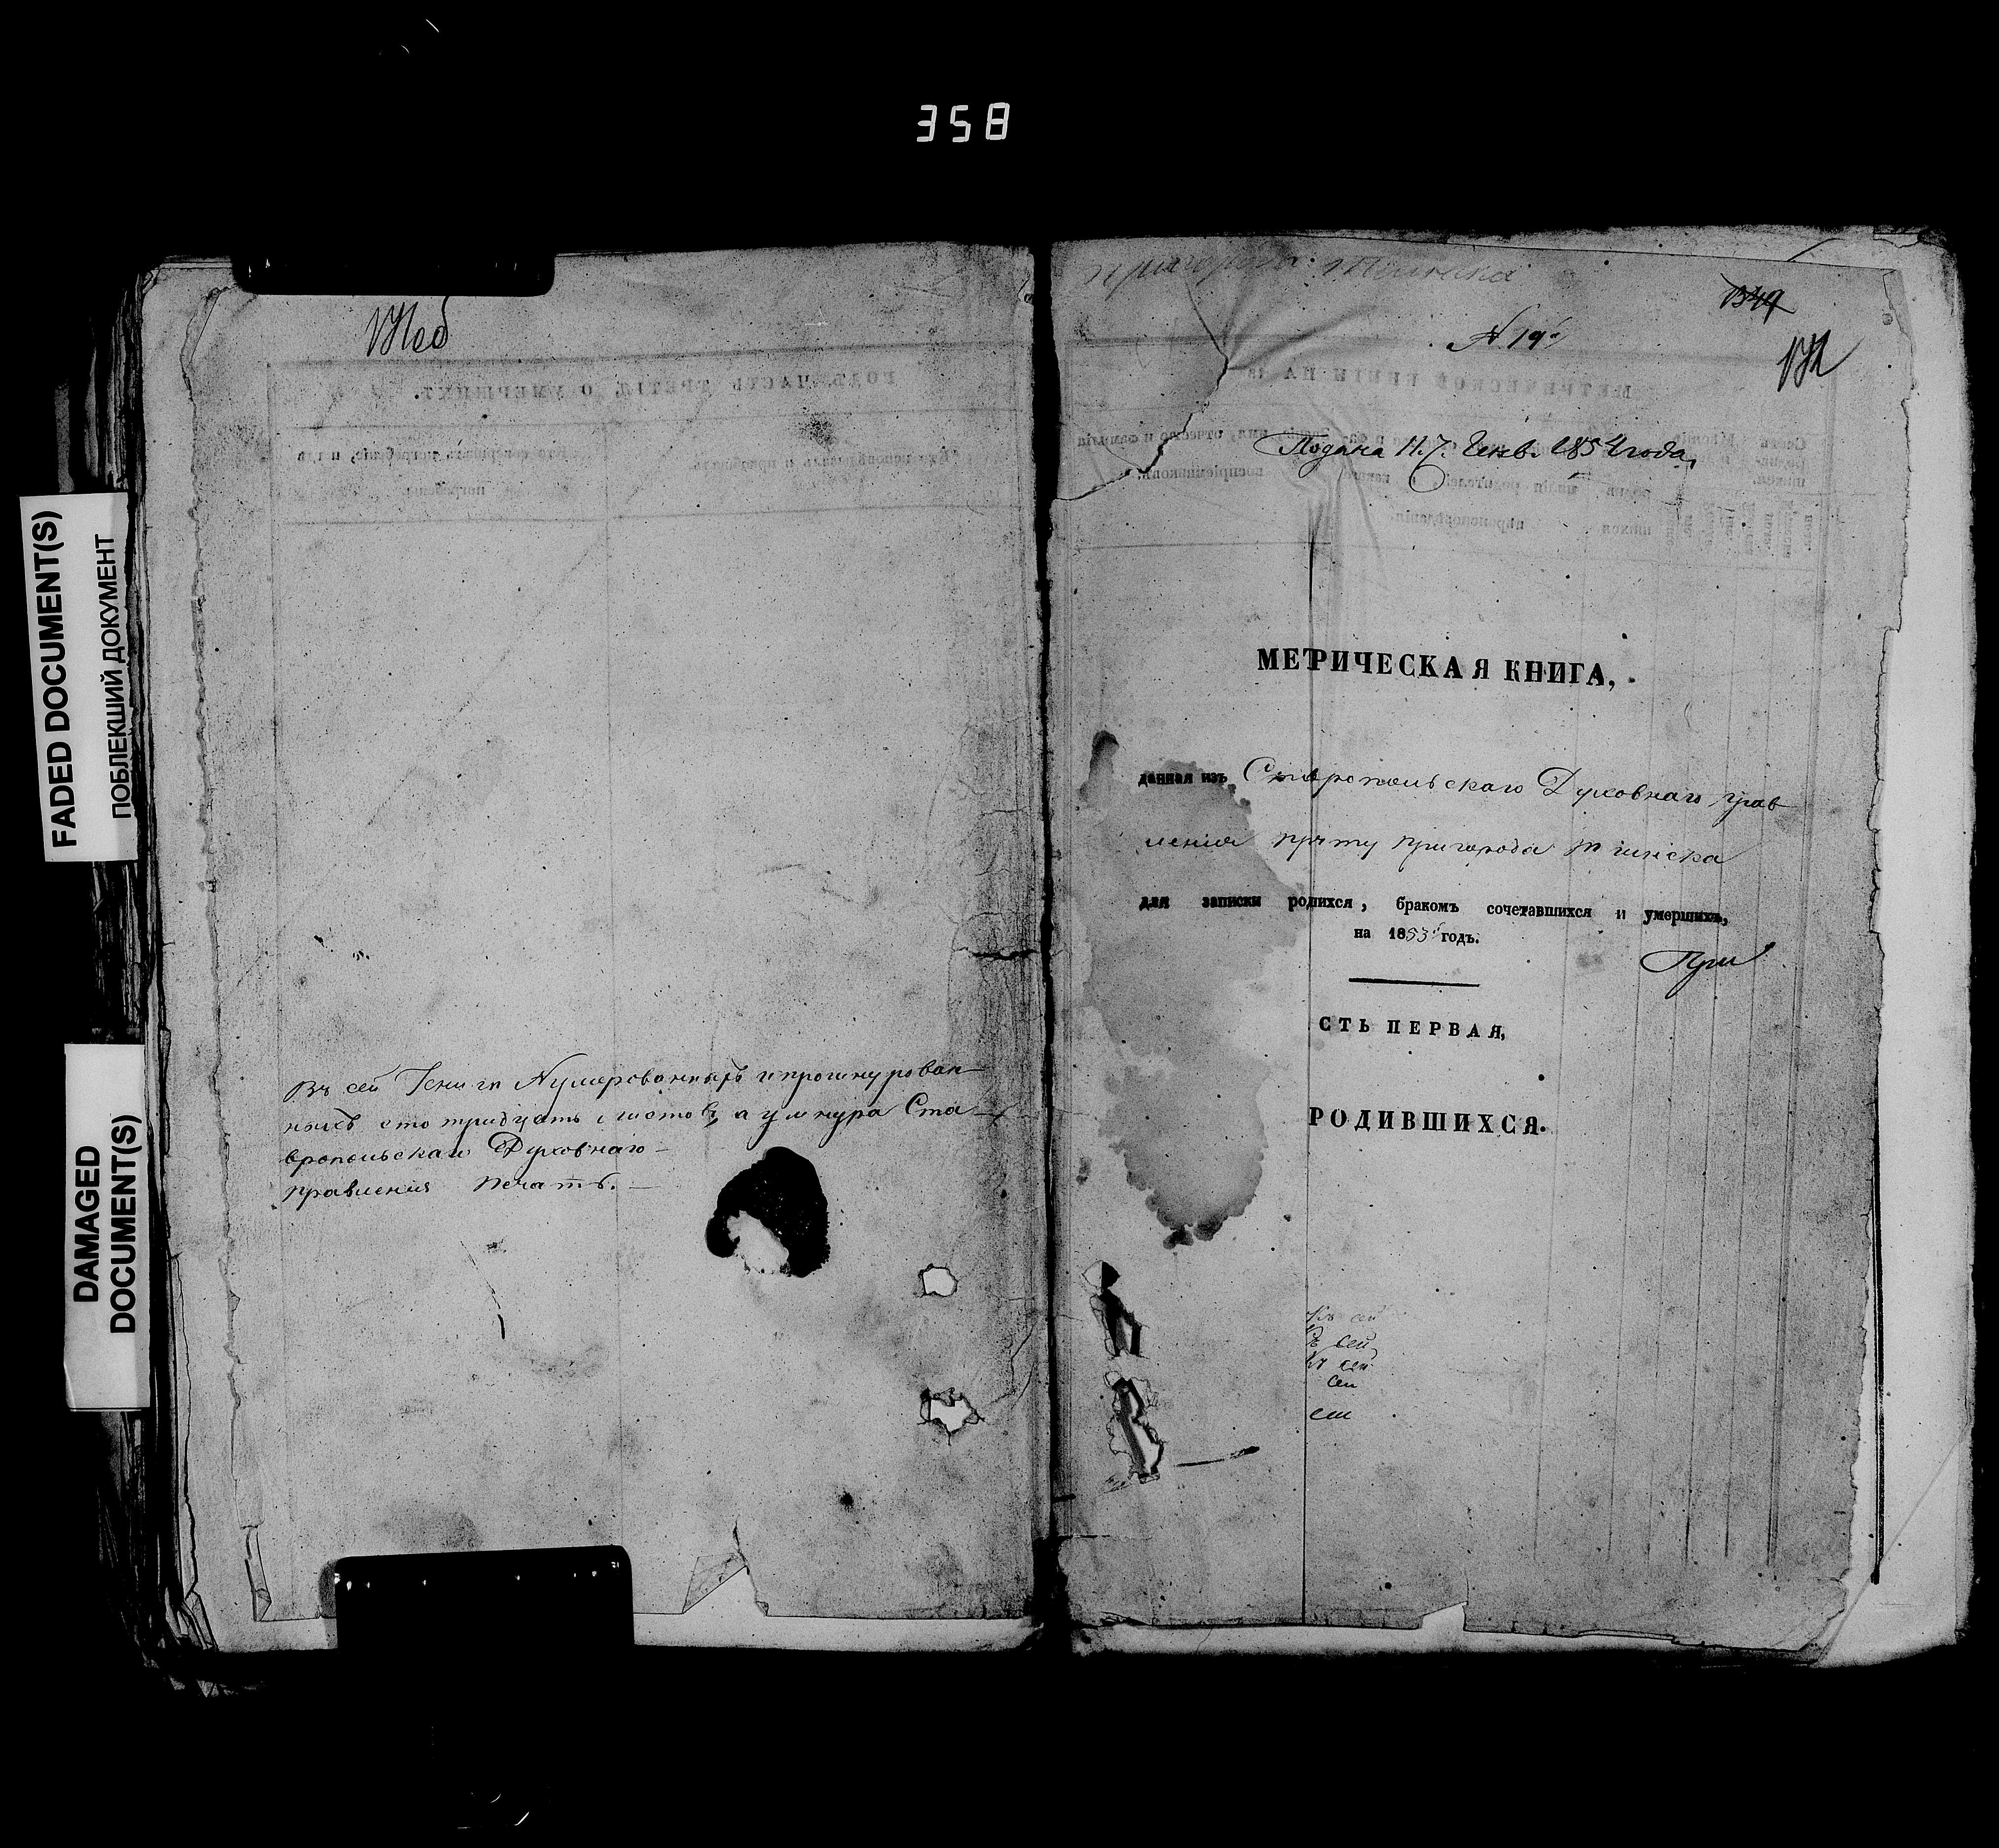 358
FADED DOCUMENT(S)
ПОБЛЕКШИЙ ДОКУМЕНТ
DAMAGED
DOCUMENT(S)
Въ сей Книги Нумерованныхъ и прошнурован
ныхъ сто тридцать листовъ, а у шнура Ста
вропольскаго Духовнаго
правления печать.
пригорода Тиинска
N 19
Подана 17. Генв. 1854 года,
МЕТРИЧЕСКАЯ КНИГА,
данная изъ Ставропольскаго Духовнаго прав
ления причту пригорода Тиинска
для записки родихся, бракомъ сочетавшихся и умершихъ,
на 1853 годъ.
При
СТЬ ПЕРВАЯ,
РОДИВШИХСЯ.
сей
Въ сей
Въ сей
сей
сей